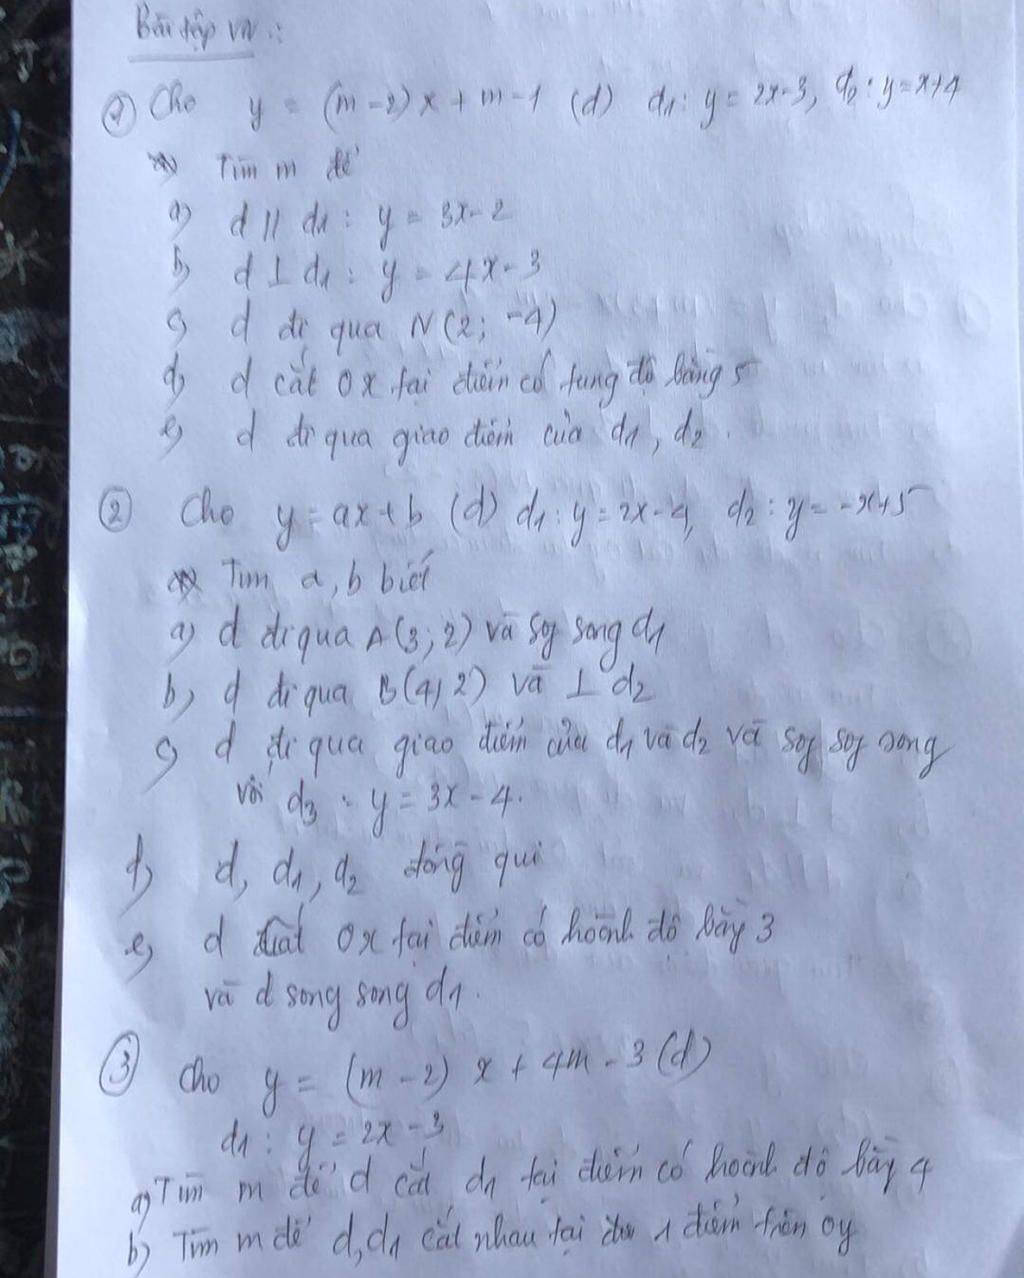 Bài tập VN :
① Cho y = (m-2)x + m-1 (d) d1: y = 2x-3, d2: y=x+4
Tìm m để
a) d // d1 : y = 3x-2
b) d ⊥ d1 : y = 4x-3
c) d đi qua N(2; -4)
d) d cắt 0x tại điểm có tung độ bằng 5
e) d đi qua giao điểm của d1, d2.
② Cho y=ax+b (d) d1: y=2x-4, d2: y=-x+5
Tìm a, b biết
a) d đi qua A(3; 2) và sog song d1
b) d đi qua B(4; 2) và ⊥ d2
c) d đi qua giao điểm của d1 và d2 và sog sog song
với d3 : y = 3x-4.
d) d, d1, d2 đồng qui
e) d cắt 0x tại điểm có hoành độ bằg 3
và d song song d1.
③ Cho y = (m-2) x + 4m-3 (d)
d1 : y = 2x-3
a) Tìm m để d cắt d1 tại điểm có hoành độ bằg 4
b) Tìm m để d, d1 cắt nhau tại 1 điểm trên oy